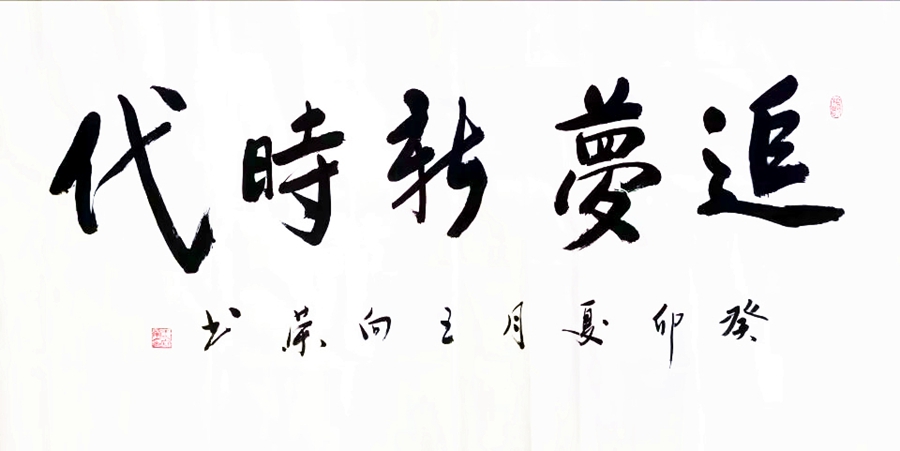 追夢新時代
癸卯夏月王向榮书